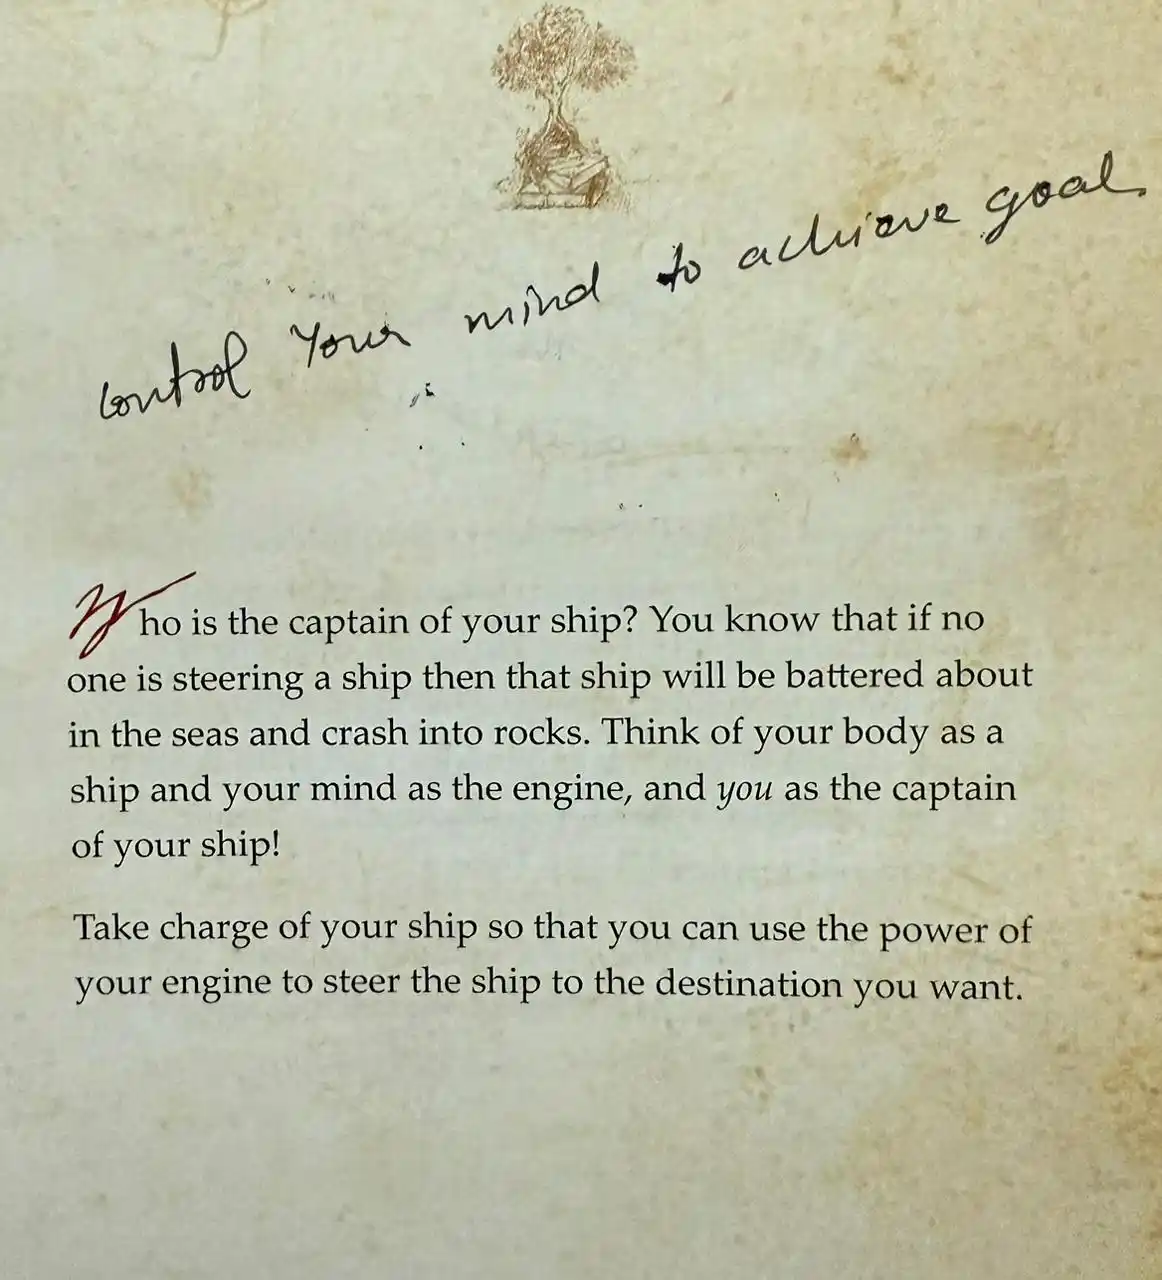 control Your mind to achieve goal.
Who is the captain of your ship? You know that if no
one is steering a ship then that ship will be battered about
in the seas and crash into rocks. Think of your body as a
ship and your mind as the engine, and you as the captain
of your ship!
Take charge of your ship so that you can use the power of
your engine to steer the ship to the destination you want.